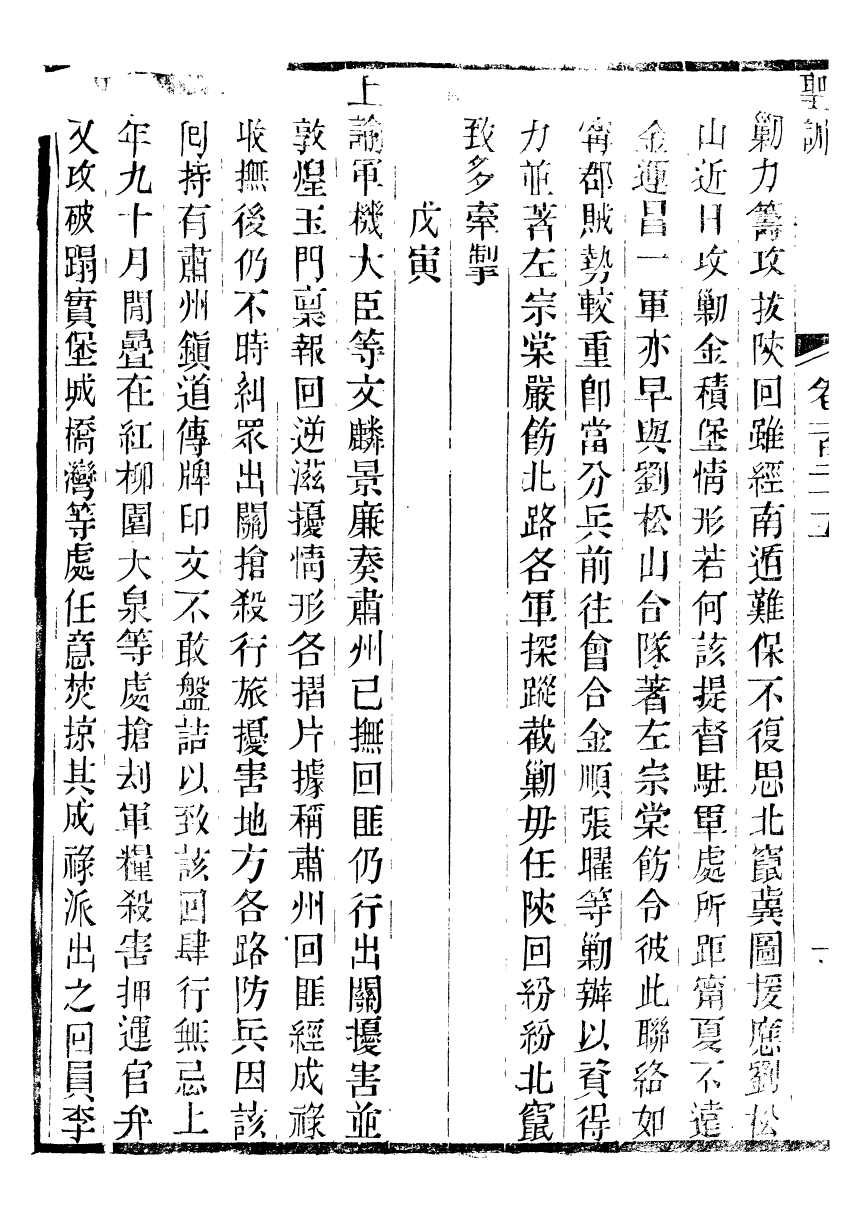 聖訓
卷一百二十
勦力籌攻拔陝回雖經南遁難保不復思北竄冀圖援應劉松
山近日攻勦金積堡情形若何該提督駐軍處所距甯夏不遠
金運昌一軍亦早與劉松山合隊著左宗棠飭令彼此聯絡如
甯郡賊勢較重卽當分兵前往會合金順張曜等勦辦以資得
力並著左宗棠嚴飭北路各軍探蹤截勦毋任陝回紛紛北竄
致多牽掣
戊寅
上諭軍機大臣等文麟景廉奏肅州已撫回匪仍行出關擾害並
敦煌玉門稟報回逆滋擾情形各摺片據稱肅州回匪經成祿
收撫後仍不時糾眾出關搶殺行旅擾害地方各路防兵因該
回持有肅州鎭道傳牌印文不敢盤詰以致該回肆行無忌上
年九十月閒疊在紅柳園大泉等處搶刦軍糧殺害押運官弁
又攻破蹋實堡城橋灣等處任意焚掠其成祿派出之回員李